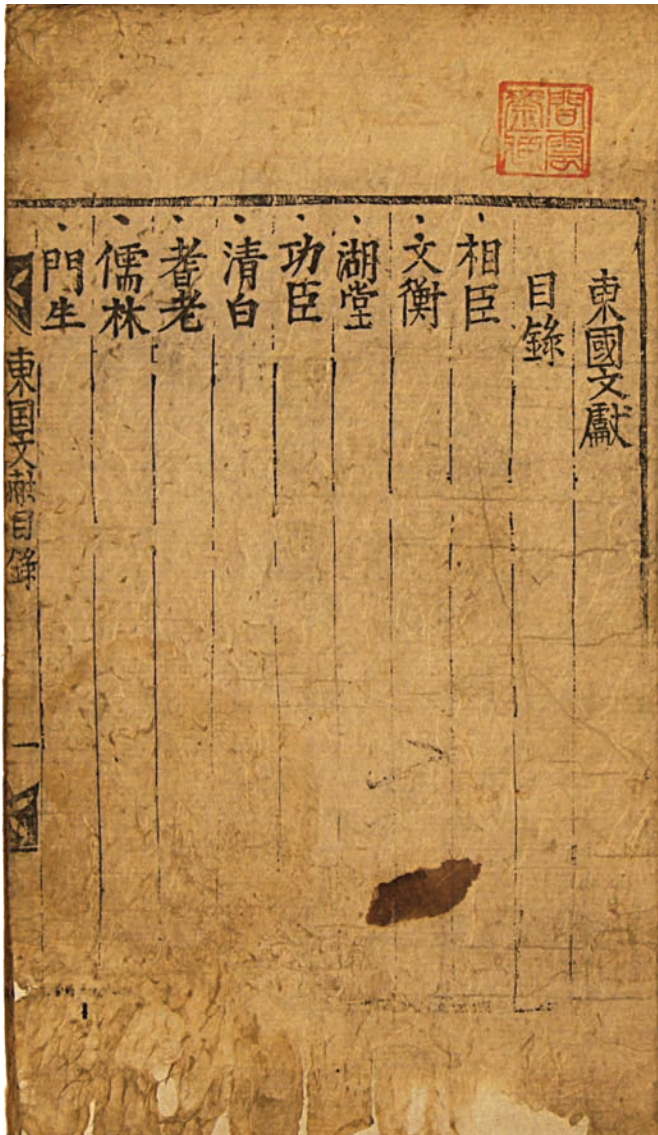 東國文獻
目錄
相臣
文衡
湖堂
功臣
清白
耆老
儒林
門生
東国文献目錄
一